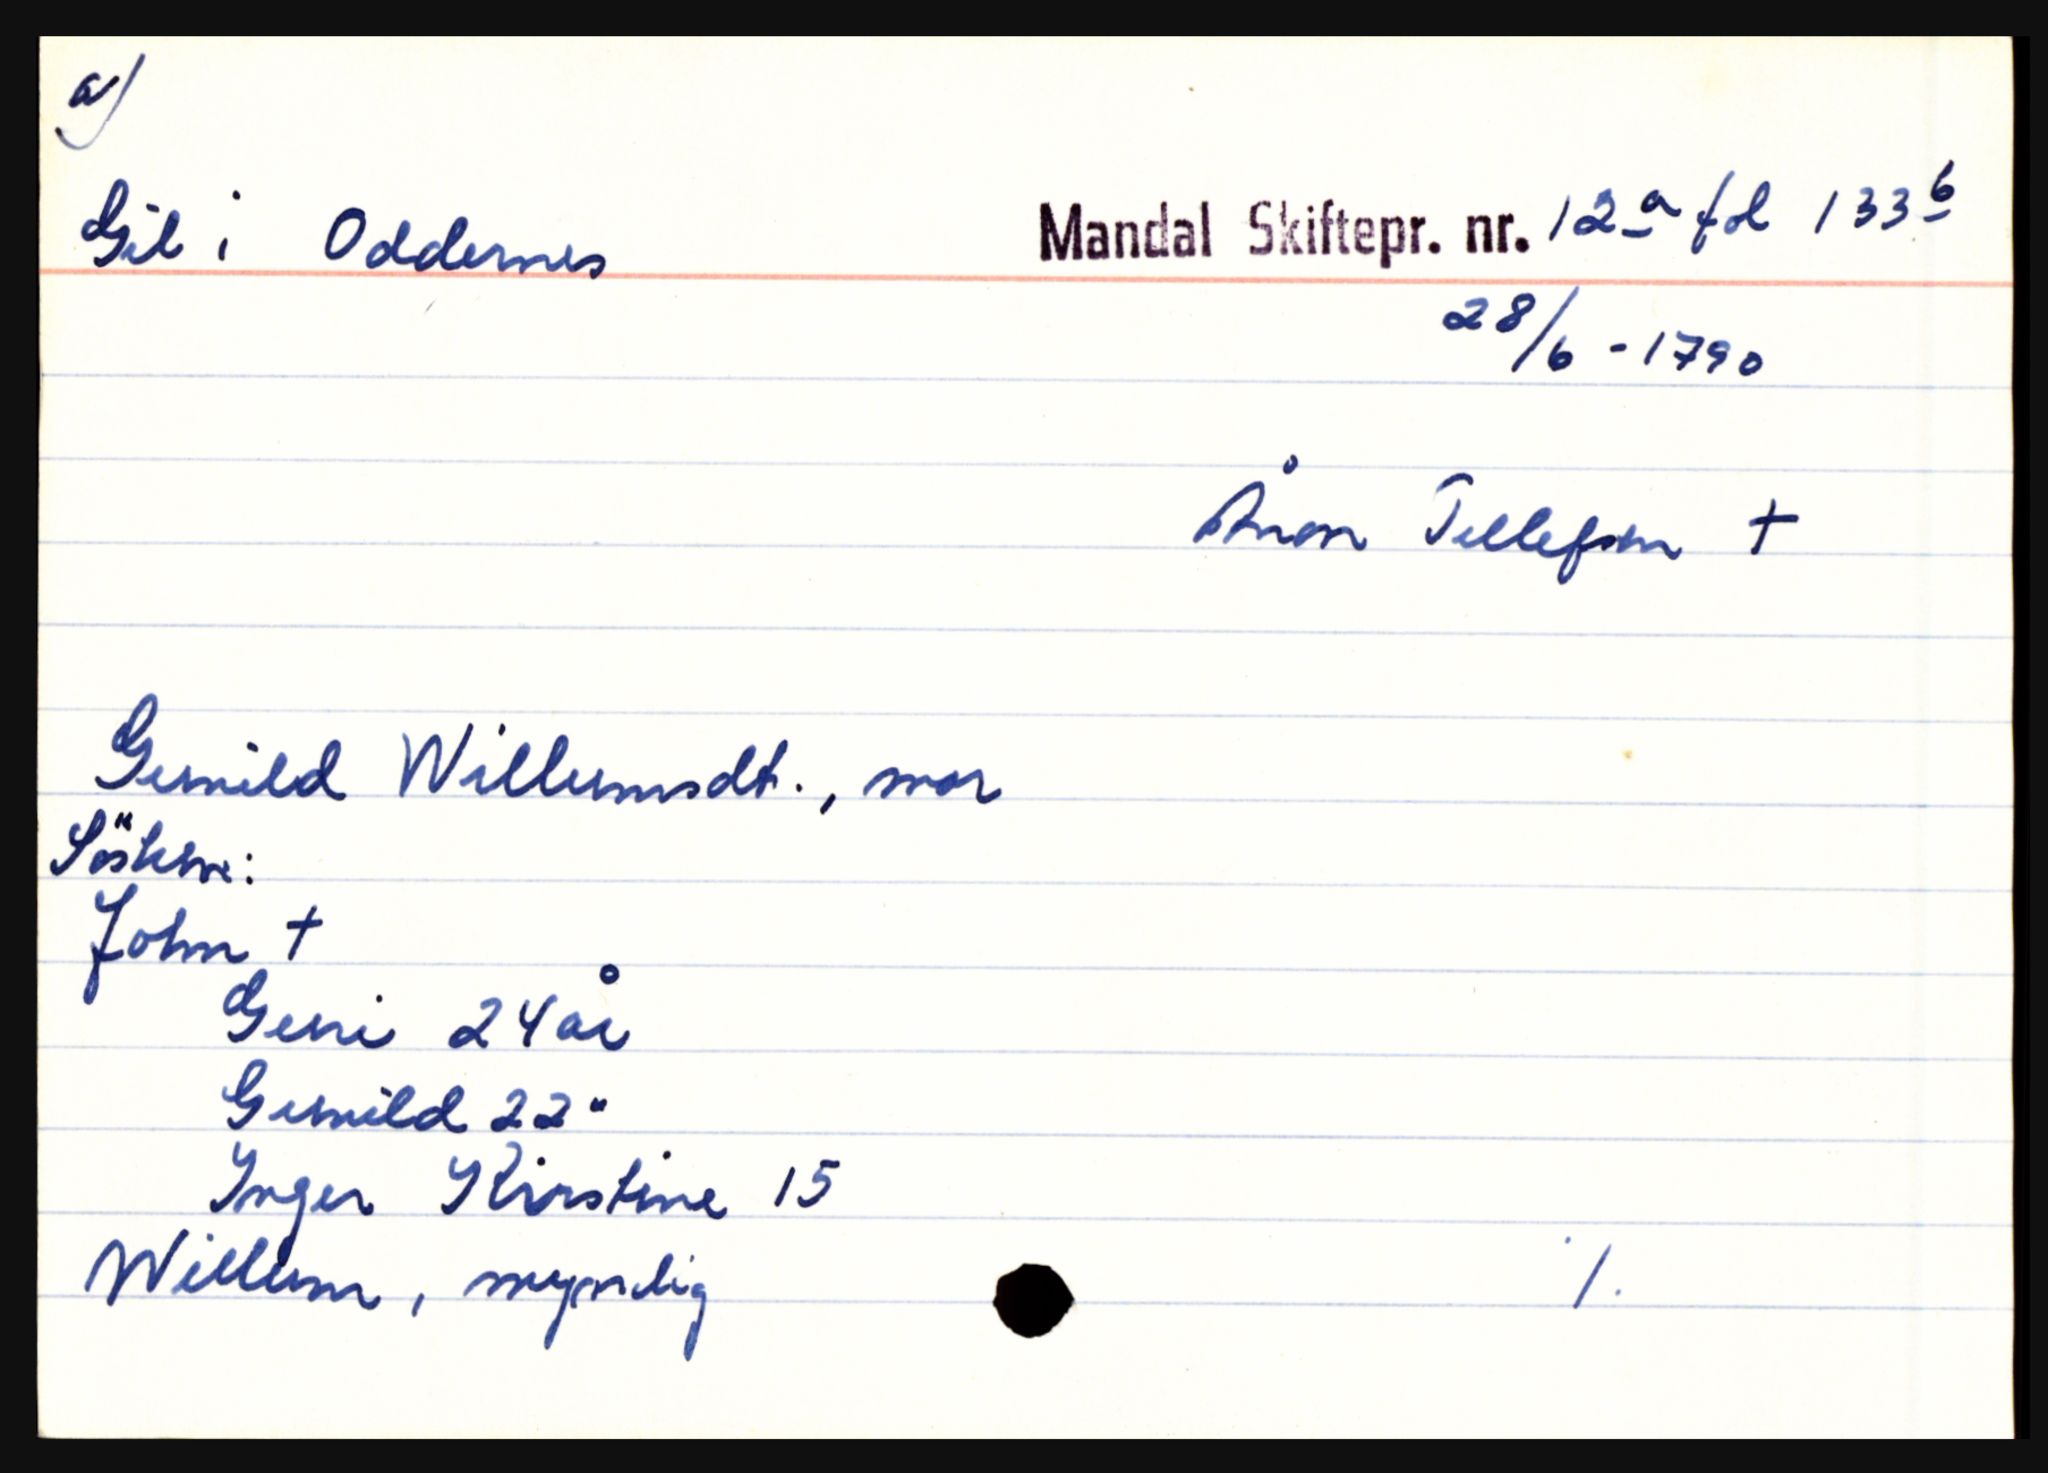 a)
Gil i Oddernes Mandal Skiftepr. nr. 12a fol 133b
28/6 - 1790
Ånon Tellefsen †
Gunild Willumsdt., mor
Söskne:
John †
Guri 24 år
Gunild 22 "
Inger Kirstine 15
Willum, myndig
./.